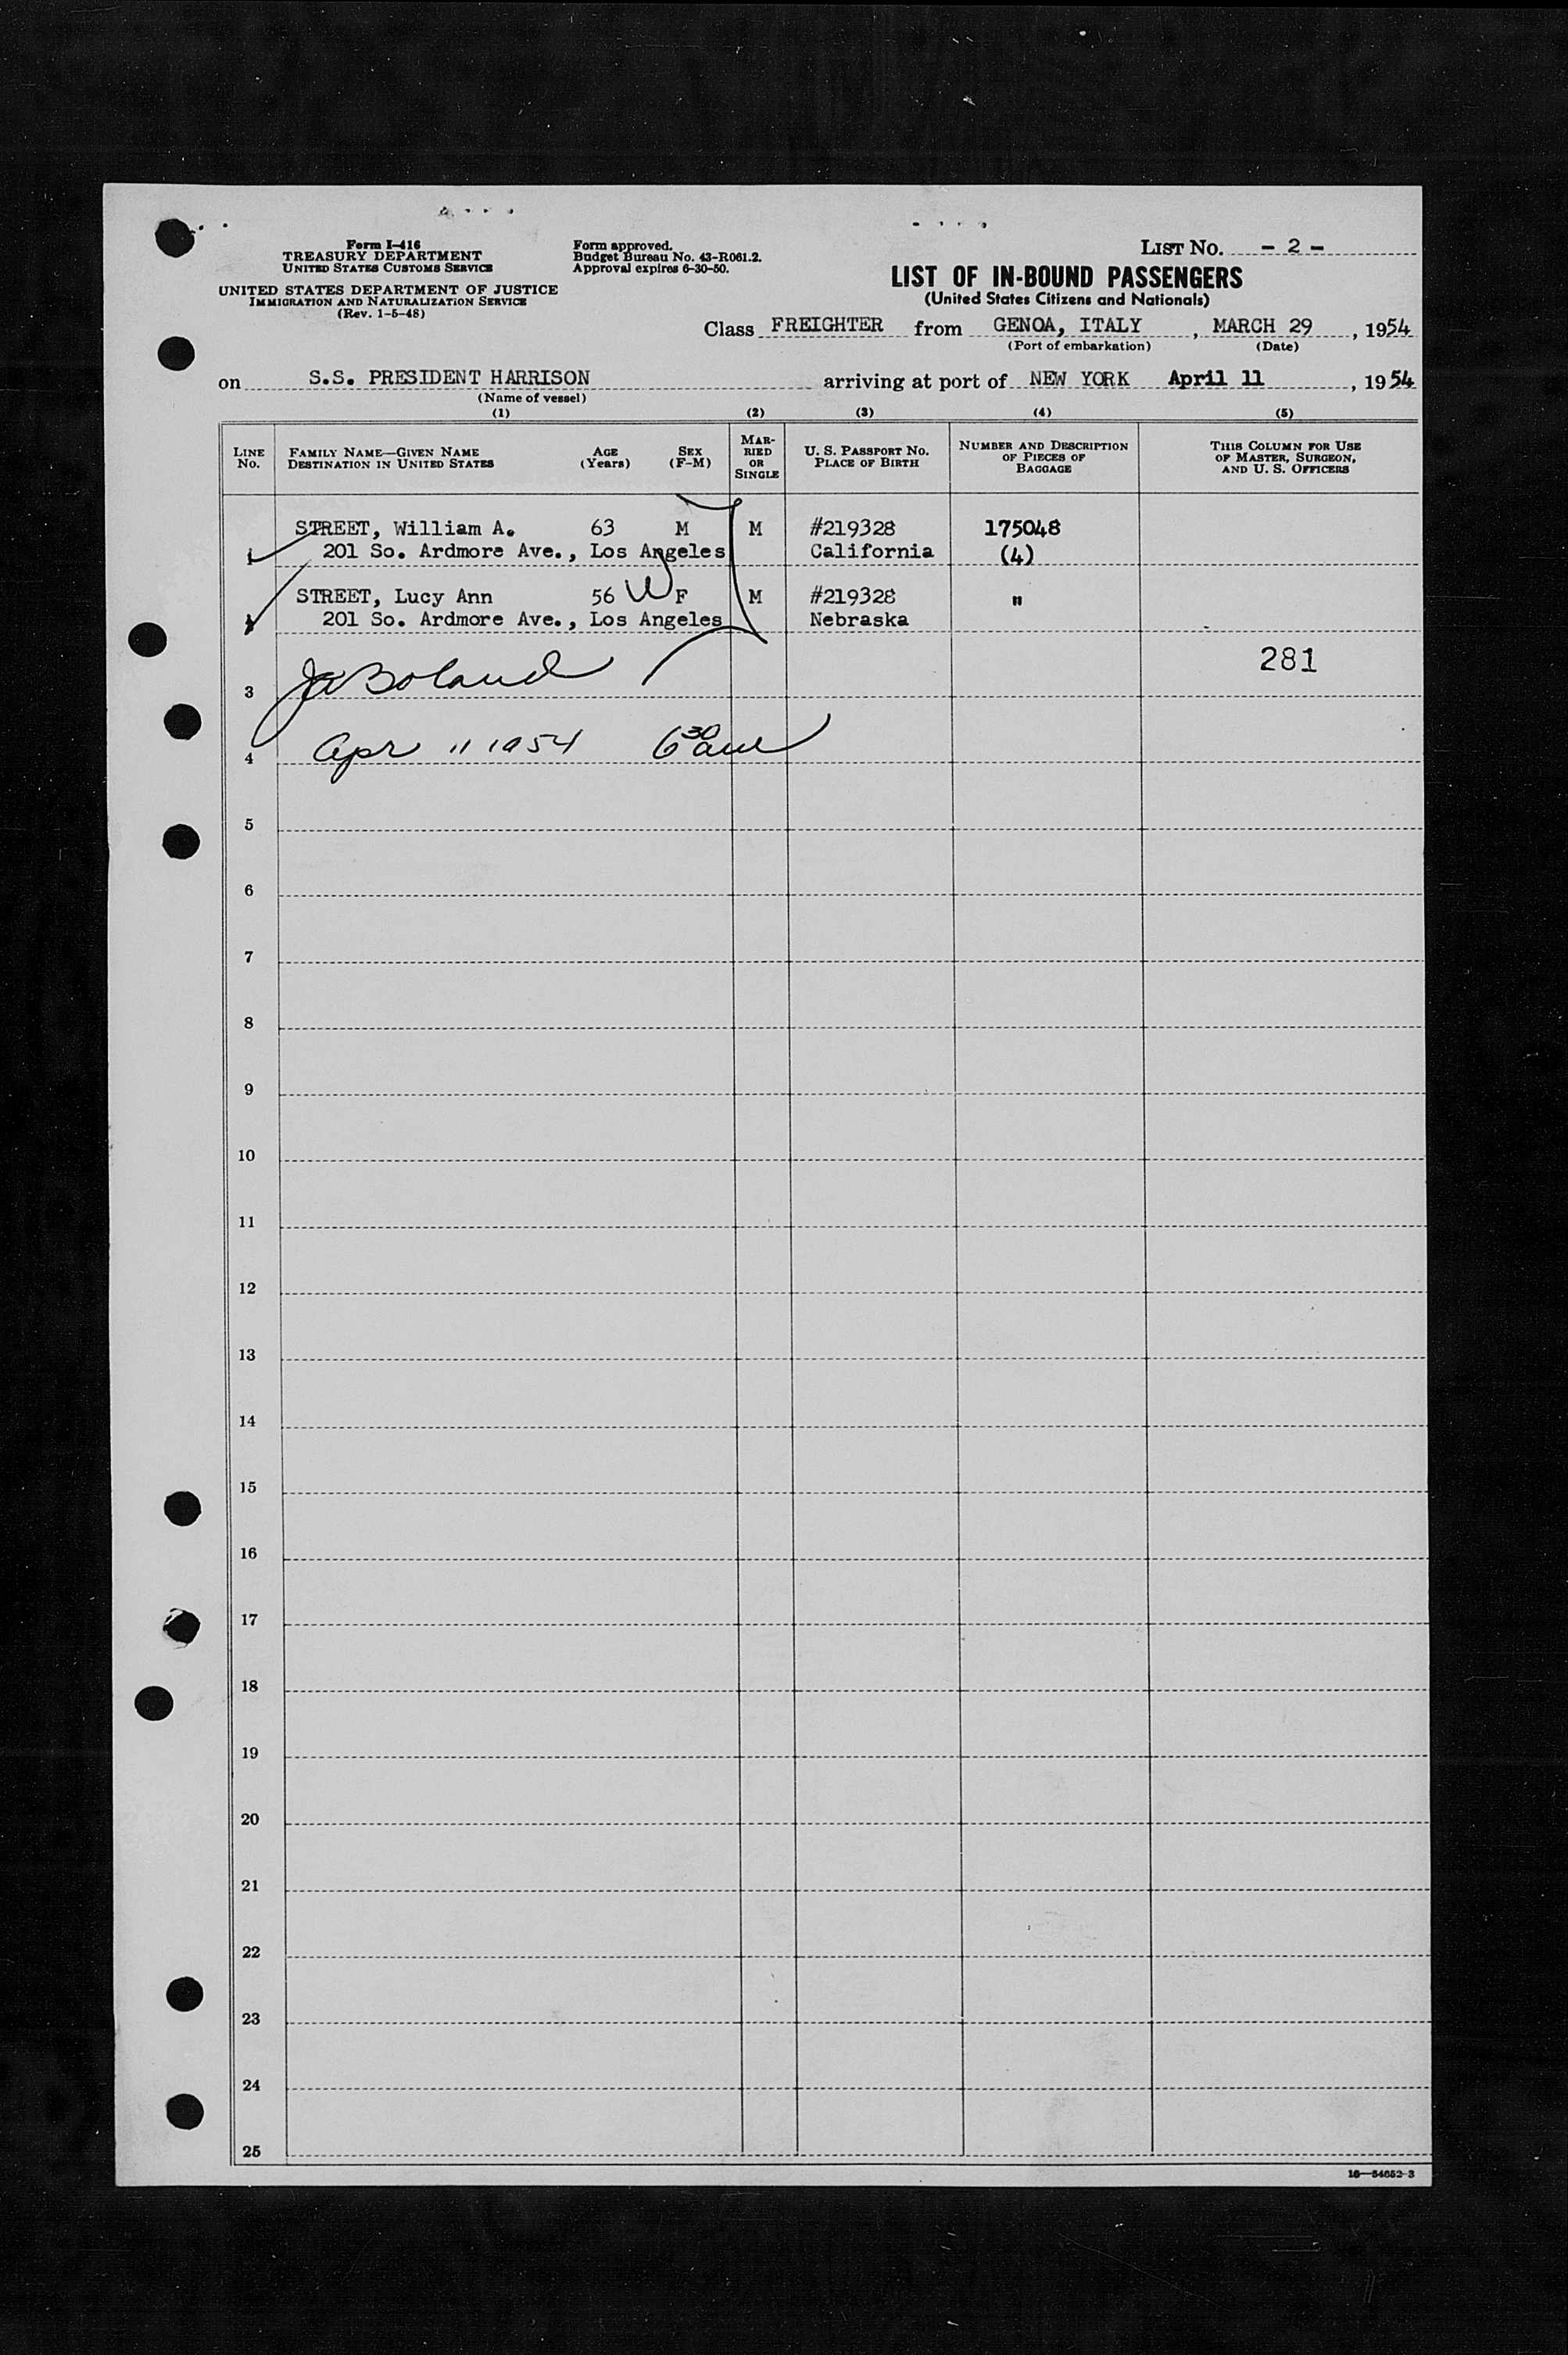 Form I-416
TREASURY DEPARTMENT
UNITED STATES CUSTOMS SERVICE
UNITED STATES DEPARTMENT OF JUSTICE
IMMIGRATION AND NATURALIZATION SERVICE
(Rev. 1-5-48)
Form approved.
Budget Bureau No. 43-R061.2.
Approval expires 6-30-50.
LIST NO. - 2 -
LIST OF IN-BOUND PASSENGERS
(United States Citizens and Nationals)
Class FREIGHTER from GENOA, ITALY, MARCH 29, 1954
(Port of embarkation) (Date)
on S.S. PRESIDENT HARRISON arriving at port of NEW YORK April 11, 1954
(Name of vessel)
(1) (2) (3) (4) (5)
LINE NO.
FAMILY NAME—GIVEN NAME
DESTINATION IN UNITED STATES
AGE
(Years)
SEX
(F-M)
MAR-
RIED
OR
SINGLE
U. S. PASSPORT NO.
PLACE OF BIRTH
NUMBER AND DESCRIPTION
OF PIECES OF
BAGGAGE
THIS COLUMN FOR USE
OF MASTER, SURGEON,
AND U. S. OFFICERS
STREET, William A. 63 M M #219328 175048
1 201 So. Ardmore Ave., Los Angeles California (4)
STREET, Lucy Ann 56 F M #219328 "
2 201 So. Ardmore Ave., Los Angeles Nebraska
281
3 JA Boland
4 Apr 11 1954 6 30 am
5
6
7
8
9
10
11
12
13
14
15
16
17
18
19
20
21
22
23
24
25
16—54652-3